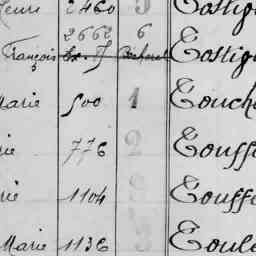 Henri 2460 5 Costig
2662 6
François Costig
Marie 500 1 Couch
rie 776 2 Couff
rie 1104 3 Couffe
Marie 1136 3 Coule